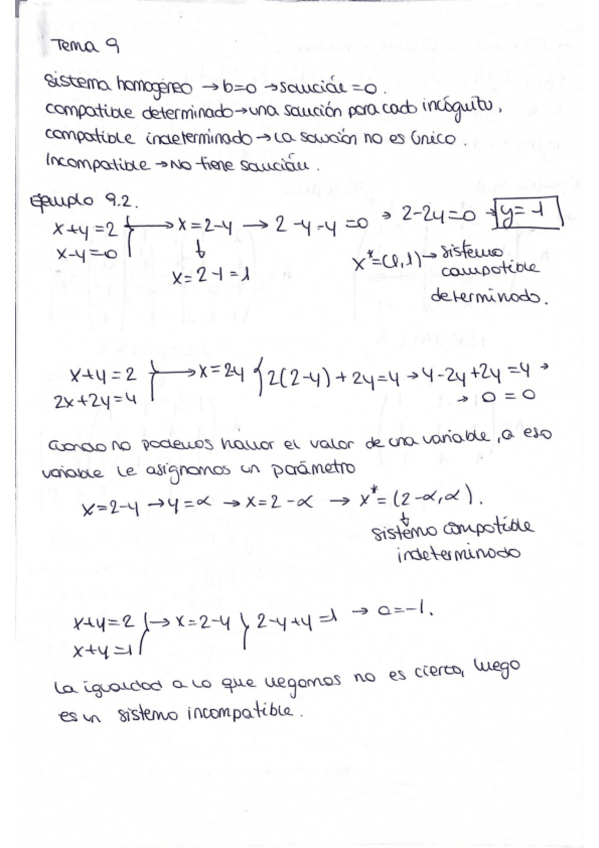 Tema 9
Sistema homogéneo → b=0 → solución = 0.
compatible determinado → una solución para cada incógnita.
compatible indeterminado → La solución no es única.
Incompatible → No tiene solución.
Ejemplo 9.2.
x+y=2 } → x=2-y → 2-y-y=0 → 2-2y=0 → y=1
x-y=0
↓
x=2-1=1
x*=(1,1) → sistema
compatible
determinado.
x+y=2 } → x=2y { 2(2-y)+2y=4 → 4-2y+2y=4 →
2x+2y=4
→ 0=0
Cuando no podemos hallar el valor de una variable, a esa
variable le asignamos un parámetro
x=2-y → y=α → x=2-α → x*=(2-α,α).
↓
sistema compatible
indeterminado
x+y=2 } → x=2-y } 2-y+y=1 → 0=-1.
x+y=1
La igualdad a la que llegamos no es cierta, luego
es un sistema incompatible.